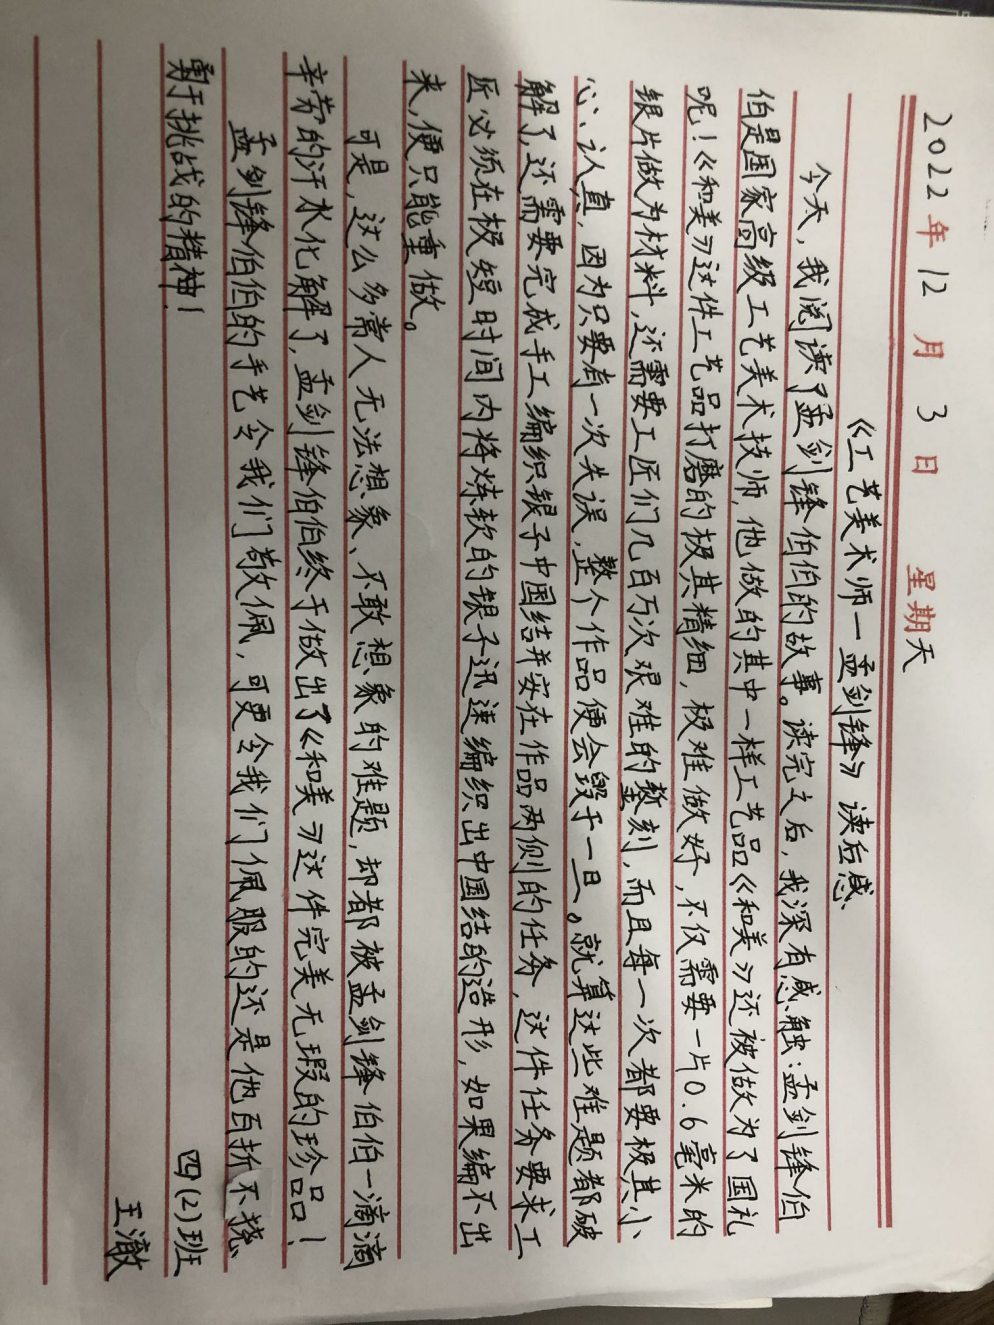 2022年12月3日 星期天
《工艺美术师一孟剑锋》读后感
今天，我阅读了孟剑锋伯伯的故事。读完之后，我深有感触：孟剑锋伯
伯是国家高级工艺美术技师，他做的其中一样工艺品《和美》还被做为了国礼
呢！《和美》这件工艺品打磨的极其精细，极难做好，不仅需要一片0.6毫米的
银片做为材料，还需要工匠们几百万次艰难的錾刻，而且每一次都要极其小
心、认真，因为只要有一次失误，整个作品便会毁于一旦。就算这些难题都破
解了，还需要完成手工编织银子中国结并安在作品两侧的任务，这件任务要求工
匠必须在极短时间内将炼软的银子迅速编织出中国结的造形，如果编不出
来，便只能重做。
可是，这么多常人无法想象、不敢想象的难题，却都被孟剑锋伯伯一滴滴
辛劳的汗水化解了，孟剑锋伯伯终于做出了《和美》这件完美无瑕的珍品！
孟剑锋伯伯的手艺令我们敬佩，可更令我们佩服的还是他百折不挠
勇于挑战的精神！
四(2)班
王澈